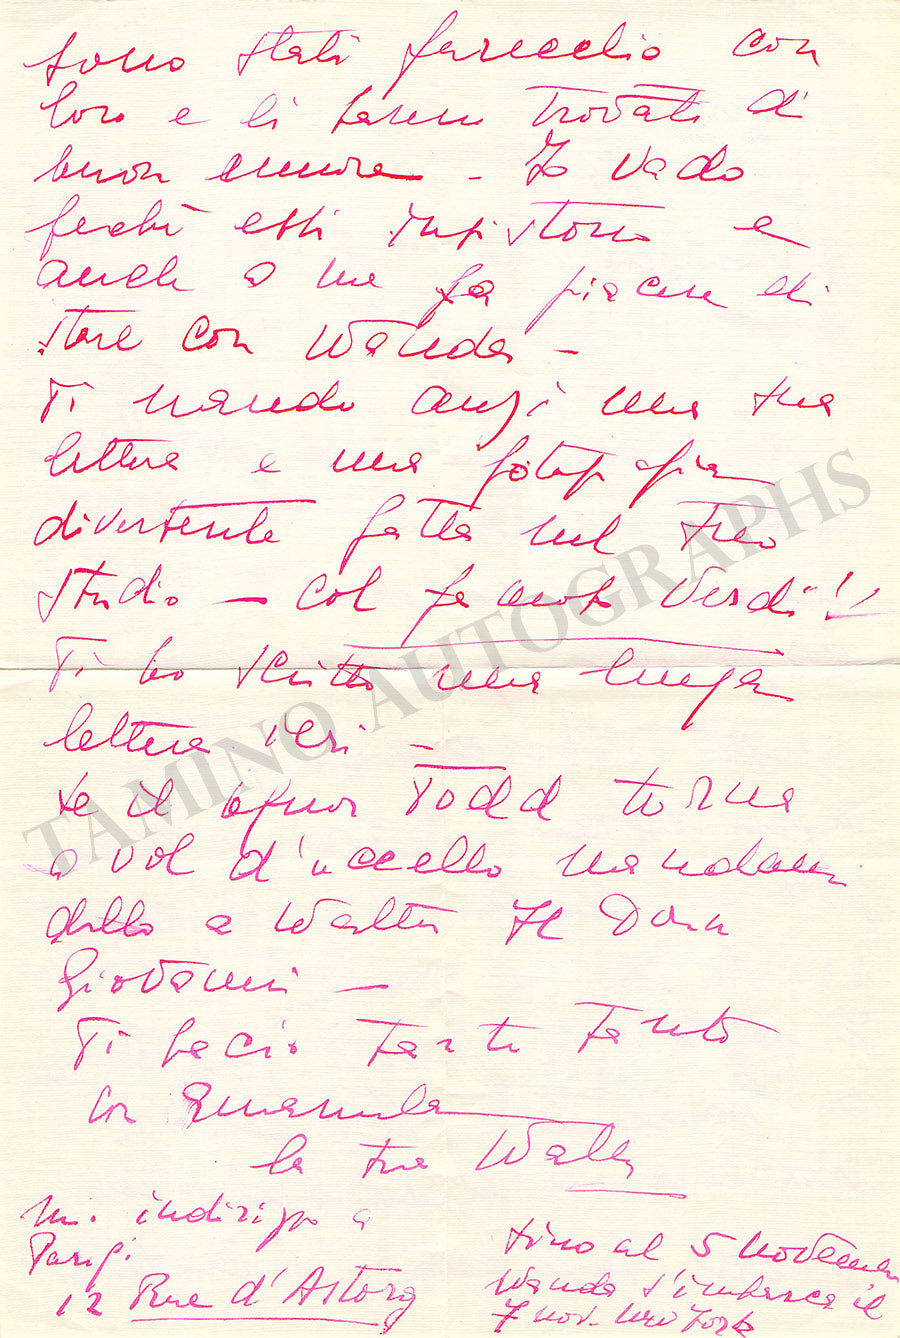 sono stati parecchio con
loro e li hanno trovati di
buon umore - Io vado
perchè essi insistono e
anche a me fa piacere di
stare con Wanda -
Ti mando anzi una sua
lettera e una fotografia
divertente fatta nel tuo
studio - col famoso Verdi!!
Ti ho scritto una lunga
lettera ieri -
Se il signor Todd torna
a vol d'uccello mandami
dallo a Walter Il Don
Giovanni -
Ti bacio tanto tanto
con Emanuela
la tua Wally
Mi. indirizzo a
Parigi
12 Rue d'Astorg
fino al 5 novembre
Wanda s'imbarca il
7 nov. New York
TAMINO AUTOGRAPHS